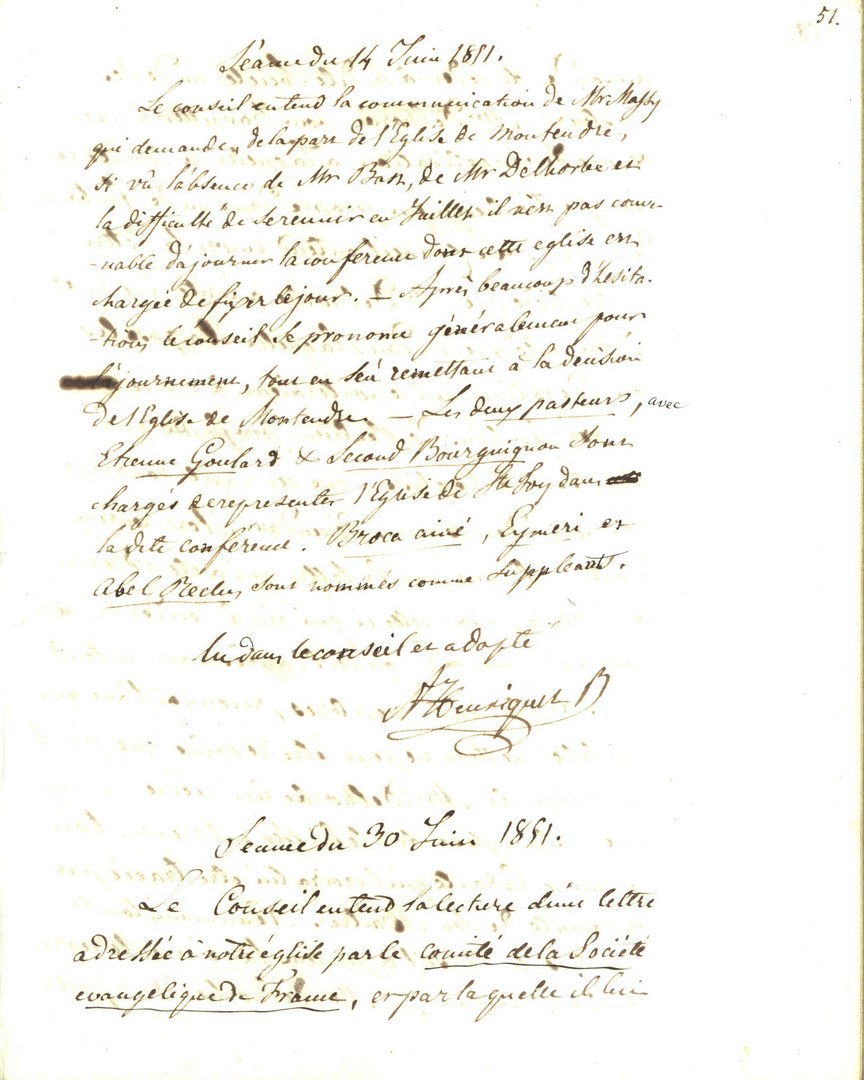 51.
Séance du 14 Juin 1851.
Le conseil entend la communication de Mr
qui demande, de la part de l'Eglise de Montendre,
si vû l'absence de Mr Bost, de Mr Delhorbe et
la difficulté de se reunir en Juillet il n'est pas conve-
-nable d'ajourner la conference dont cette eglise est
chargée de fixer le jour. — Après beaucoup d'hesita-
-tions le conseil se prononce généralement pour
l'ajournement, tout en s'en remettant à la decision
de l'Eglise de Montendre — Les deux pasteurs, avec
Etienne Goulard & Second Bourguignon sont
chargés de representer l'Eglise de Ste Foy dans
la dite conférence. Broca ainé, Eymeri et
Abel Reclus sont nommés comme suppleants.
lu dans le conseil et adopté
Henriquet
Seance du 30 Juin 1851.
Le Conseil entend la lecture d'une lettre
adressée à notre église par le comité de la Société
evangelique de France, et par la quelle il lui